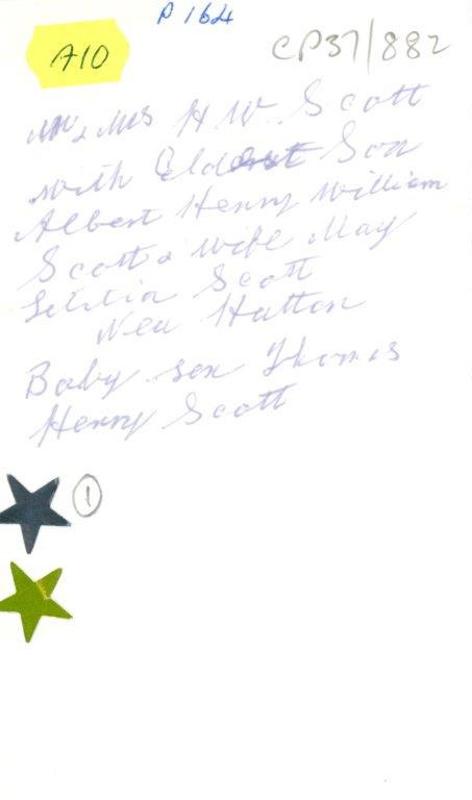 P 164
A10
CP37/882
Mr & Mrs H. W. Scott
with Eldest Son
Albert Henry William
Scott & wife May
Letitia Scott
Nee Hutton
Baby son Thomas
Henry Scott
1